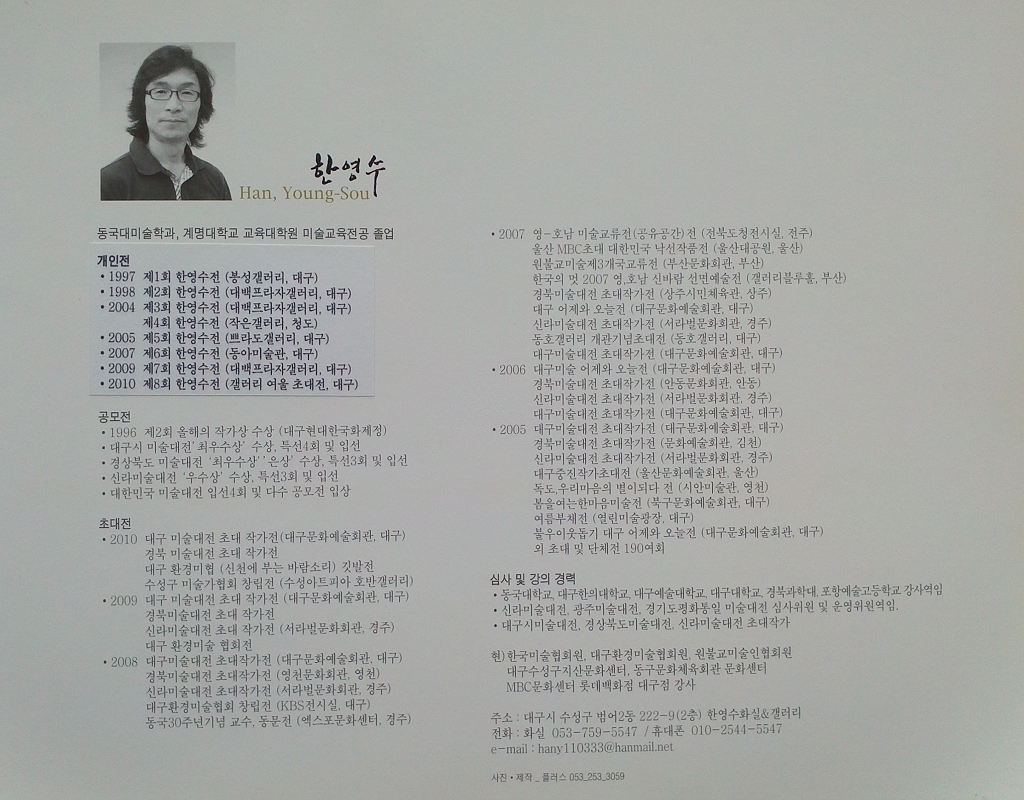 한영수
Han, Young-Sou
동국대미술학과, 계명대학교 교육대학원 미술교육전공 졸업
개인전
• 1997 제1회 한영수전 (봉성갤러리, 대구)
• 1998 제2회 한영수전 (대백프라자갤러리, 대구)
• 2004 제3회 한영수전 (대백프라자갤러리, 대구)
제4회 한영수전 (작은갤러리, 청도)
• 2005 제5회 한영수전 (쁘라도갤러리, 대구)
• 2007 제6회 한영수전 (동아미술관, 대구)
• 2009 제7회 한영수전 (대백프라자갤러리, 대구)
• 2010 제8회 한영수전 (갤러리 여울 초대전, 대구)
공모전
• 1996 제2회 올해의 작가상 수상 (대구현대한국화제정)
• 대구시 미술대전' 최우수상' 수상, 특선4회 및 입선
• 경상북도 미술대전 '최우수상' '은상' 수상, 특선3회 및 입선
• 신라미술대전 '우수상' 수상, 특선3회 및 입선
• 대한민국 미술대전 입선4회 및 다수 공모전 입상
초대전
• 2010 대구 미술대전 초대 작가전(대구문화예술회관, 대구)
경북 미술대전 초대 작가전
대구 환경미협 (신천에 부는 바람소리) 깃발전
수성구 미술가협회 창립전 (수성아트피아 호반갤러리)
• 2009 대구 미술대전 초대 작가전 (대구문화예술회관, 대구)
경북미술대전 초대 작가전
신라미술대전 초대 작가전 (서라벌문화회관, 경주)
대구 환경미술 협회전
• 2008 대구미술대전 초대작가전 (대구문화예술회관, 대구)
경북미술대전 초대작가전 (영천문화회관, 영천)
신라미술대전 초대작가전 (서라벌문화회관, 경주)
대구환경미술협회 창립전 (KBS전시실, 대구)
동국30주년기념 교수, 동문전 (엑스포문화센터, 경주)
• 2007 영-호남 미술교류전(공유공간)전 (전북도청전시실, 전주)
울산 MBC초대 대한민국 낙선작품전 (울산대공원, 울산)
원불교미술제3개국교류전 (부산문화회관, 부산)
한국의 멋 2007 영.호남 신바람 선면예술전 (갤러리블루홀, 부산)
경북미술대전 초대작가전 (상주시민체육관, 상주)
대구 어제와 오늘전 (대구문화예술회관, 대구)
신라미술대전 초대작가전 (서라벌문화회관, 경주)
동호갤러리 개관기념초대전 (동호갤러리, 대구)
대구미술대전 초대작가전 (대구문화예술회관, 대구)
• 2006 대구미술 어제와 오늘전 (대구문화예술회관, 대구)
경북미술대전 초대작가전 (안동문화회관, 안동)
신라미술대전 초대작가전 (서라벌문화회관, 경주)
대구미술대전 초대작가전 (대구문화예술회관, 대구)
• 2005 대구미술대전 초대작가전 (대구문화예술회관, 대구)
경북미술대전 초대작가전 (문화예술회관, 김천)
신라미술대전 초대작가전 (서라벌문화회관, 경주)
대구중진작가초대전 (울산문화예술회관, 울산)
독도,우리마음의 별이되다 전 (시안미술관, 영천)
봄을여는한마음미술전 (북구문화예술회관, 대구)
여름부채전 (열린미술광장, 대구)
불우이웃돕기 대구 어제와 오늘전 (대구문화예술회관, 대구)
외 초대 및 단체전 190여회
심사 및 강의 경력
• 동국대학교, 대구한의대학교, 대구예술대학교, 대구대학교, 경북과학대, 포항예술고등학교 강사역임
• 신라미술대전, 광주미술대전, 경기도평화통일 미술대전 심사위원 및 운영위원역임.
• 대구시미술대전, 경상북도미술대전, 신라미술대전 초대작가
현)한국미술협회원, 대구환경미술협회원, 원불교미술인협회원
대구수성구지산문화센터, 동구문화체육회관 문화센터
MBC문화센터 롯데백화점 대구점 강사
주소 : 대구시 수성구 범어2동 222-9(2층) 한영수화실&갤러리
전화 : 화실 053-759-5547 / 휴대폰 010-2544-5547
e-mail : hany110333@hanmail.net
사진 • 제작 _ 플러스 053_253_3059